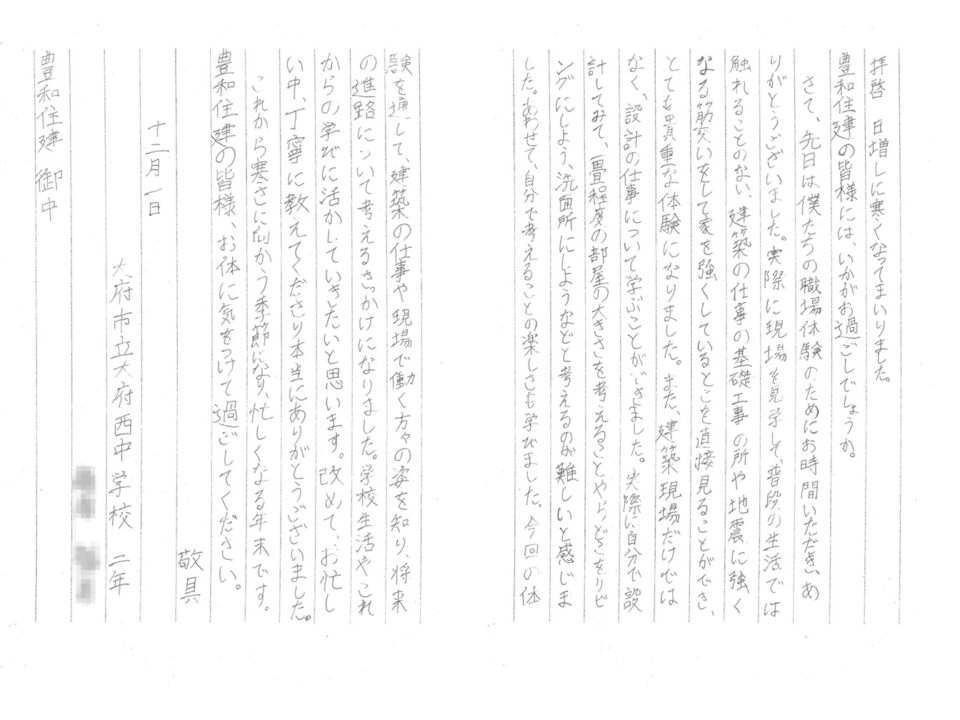 拝啓 日増しに寒くなってまいりました。
豊和住建の皆様には、いかがお過ごしでしょうか。
さて、先日は僕たちの職場体験のためにお時間いただき、あ
りがとうございました。実際に現場を見学して、普段の生活では
触れることのない、建築の仕事の基礎工事の所や地震に強く
なる筋交いをして家を強くしているとこを直接見ることができ、
とても貴重な体験になりました。また、建築現場だけでは
なく、設計の仕事について学ぶことができました。実際に自分で設
計してみて、一畳程度の部屋の大きさを考えることやらどこをリビ
ングにしよう、洗面所にしようなどと考えるのが難しいと感じま
した。あわせて、自分で考えることの楽しさも学びました。今回の体
験を通して、建築の仕事や現場で働く方々の姿を知り、将来
の進路について考えるきっかけになりました。学校生活やこれ
からの学びに活かしていきたいと思います。改めて、お忙し
い中、丁寧に教えてくださり本当にありがとうございました。
これから寒さに向かう季節になり、忙しくなる年末です。
豊和住建の皆様、お体に気をつけて過ごしてください。
敬具
十二月一日
大府市立大府西中学校 二年
豊和住建 御中